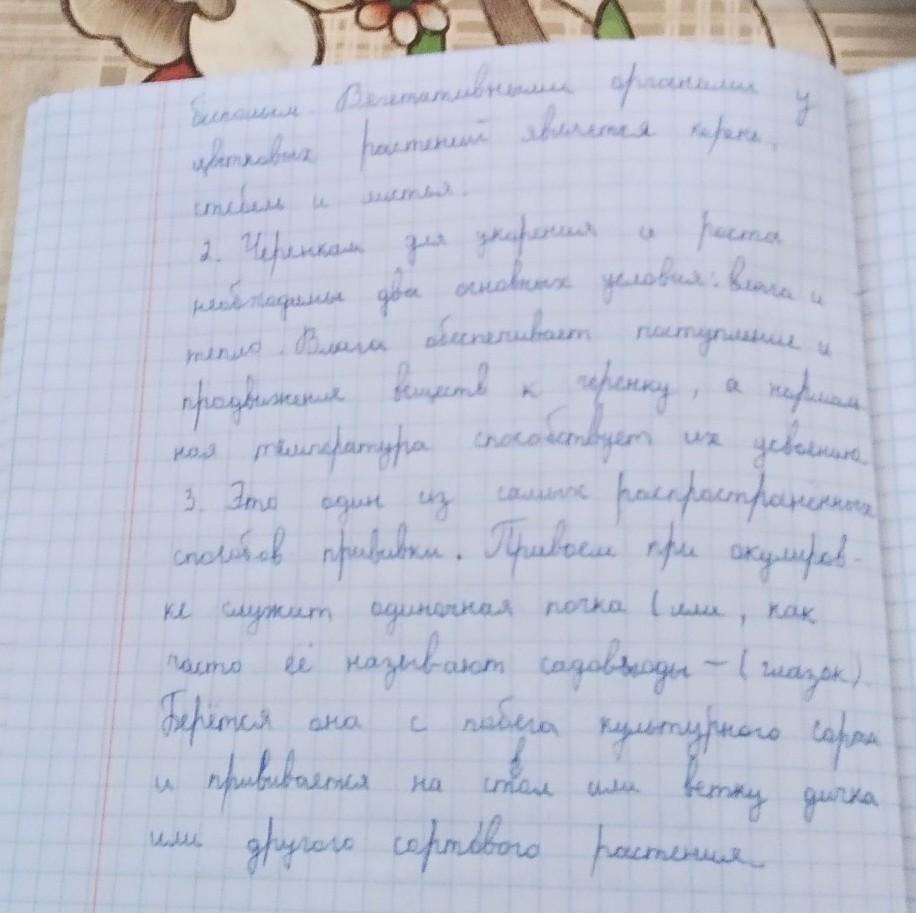 Вегетативными органами у
цветковых растений является корень,
стебель и листья.
2. Черенкам для укорения и роста
необходимы два основных условия: влага и
тепло. Влага обеспечивает поступление и
продвижения веществ к черенку, а нормаль
ная температура способствует их усвоению
3. Это один из самых распространённых
способов прививки. Привоем при окулиров-
ке служит одиночная почка (или, как
часто её называют садоводы - (глазок).
Берётся она с побега культурного сорта
и прививается на ствол или ветку дичка
или другого сортового растения